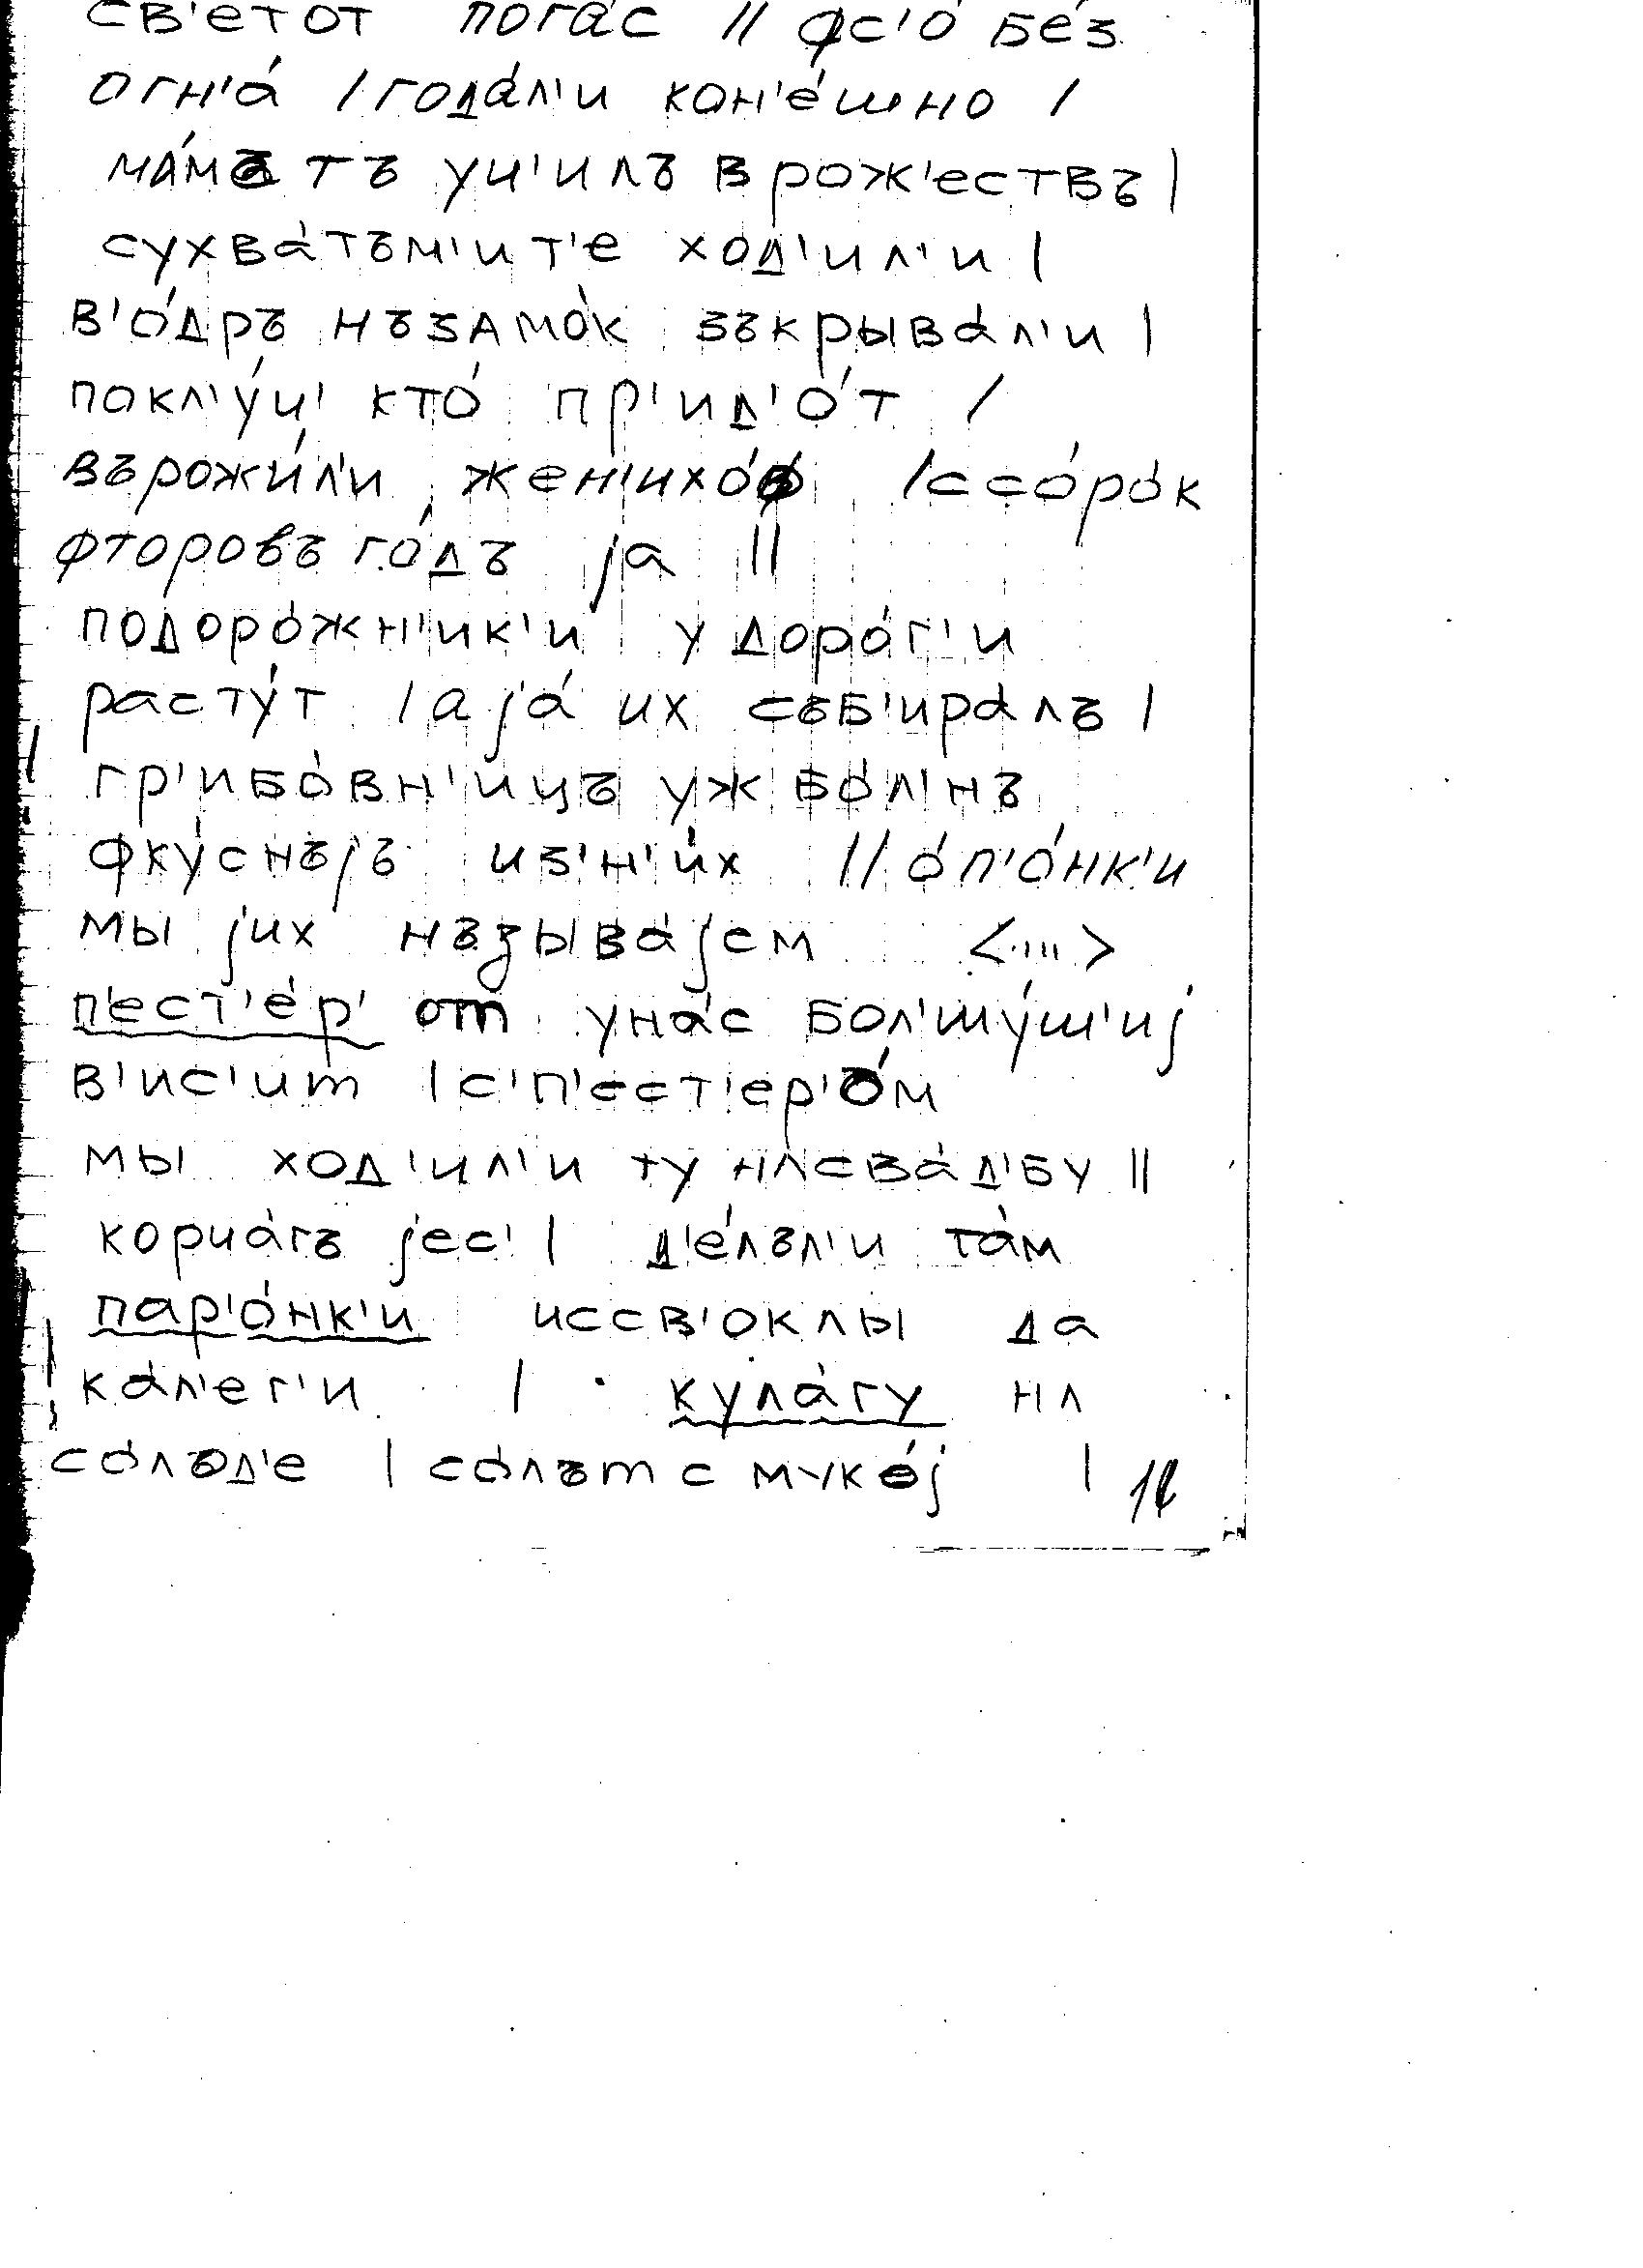 св'етот погáс // фс'ó бéз
огн'á / годáл'и кон'éшно /
мáмътъ уч'илъ в рож'ествъ |
сухвáтъм'и т'е ход'ил'и |
в'óдръ нъзамóк зъкрывáл'и |
покл'ýч' ктó пр'ид'óт /
върожи́л'и жен'ихóф / ссóрóк
фторовъ гóдъ ja ||
подорóжн'ик'и у дорóг'и
растýт / а já их съб'ирáлъ |
гр'ибóвн'ицъ уж бóл'нъ
фкýснъjъ из'н'и́х // óп'óнк'и
мы jих нъзывájем <....>
п'ест'éр' от унáс бол'шýш'иj
в'ис'ит | с'п'ест'ер'óм
мы ход'ил'и ту нʌсвáд'бу ||
корчáгъ jес' | д'éлъл'и тáм
пар'óнк'и иссв'оклы да
кáл'ег'и | кулáгу нʌ
сóлъд'е | сóлът с мукój |